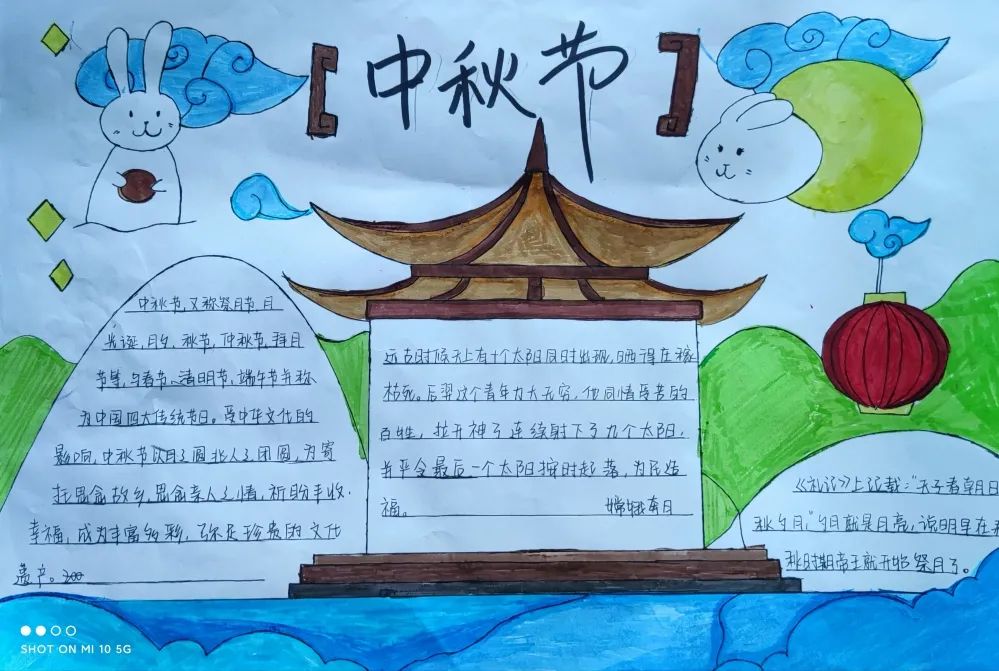 【中秋节】
中秋节,又称祭月节、月
光诞、月夕、秋节、仲秋节、拜月
节等,与春节、清明节、端午节并称
为中国四大传统节日。受中华文化的
影响,中秋节以月之圆兆人之团圆,为寄
托思念故乡,思念亲人之情,祈盼丰收、
幸福,成为丰富多彩,弥足珍贵的文化
遗产。
远古时候天上有十个太阳同时出现,晒得庄稼
枯死。后羿这个青年力大无穷,他同情受苦的
百姓,拉开神弓连续射下了九个太阳,
并严令最后一个太阳按时起落,为民造
福。 嫦娥奔月
《礼记》上记载:"天子春朝日
秋夕月,"夕月就是月亮,说明早在
秋时期帝王就开始祭月了。
SHOT ON MI 10 5G